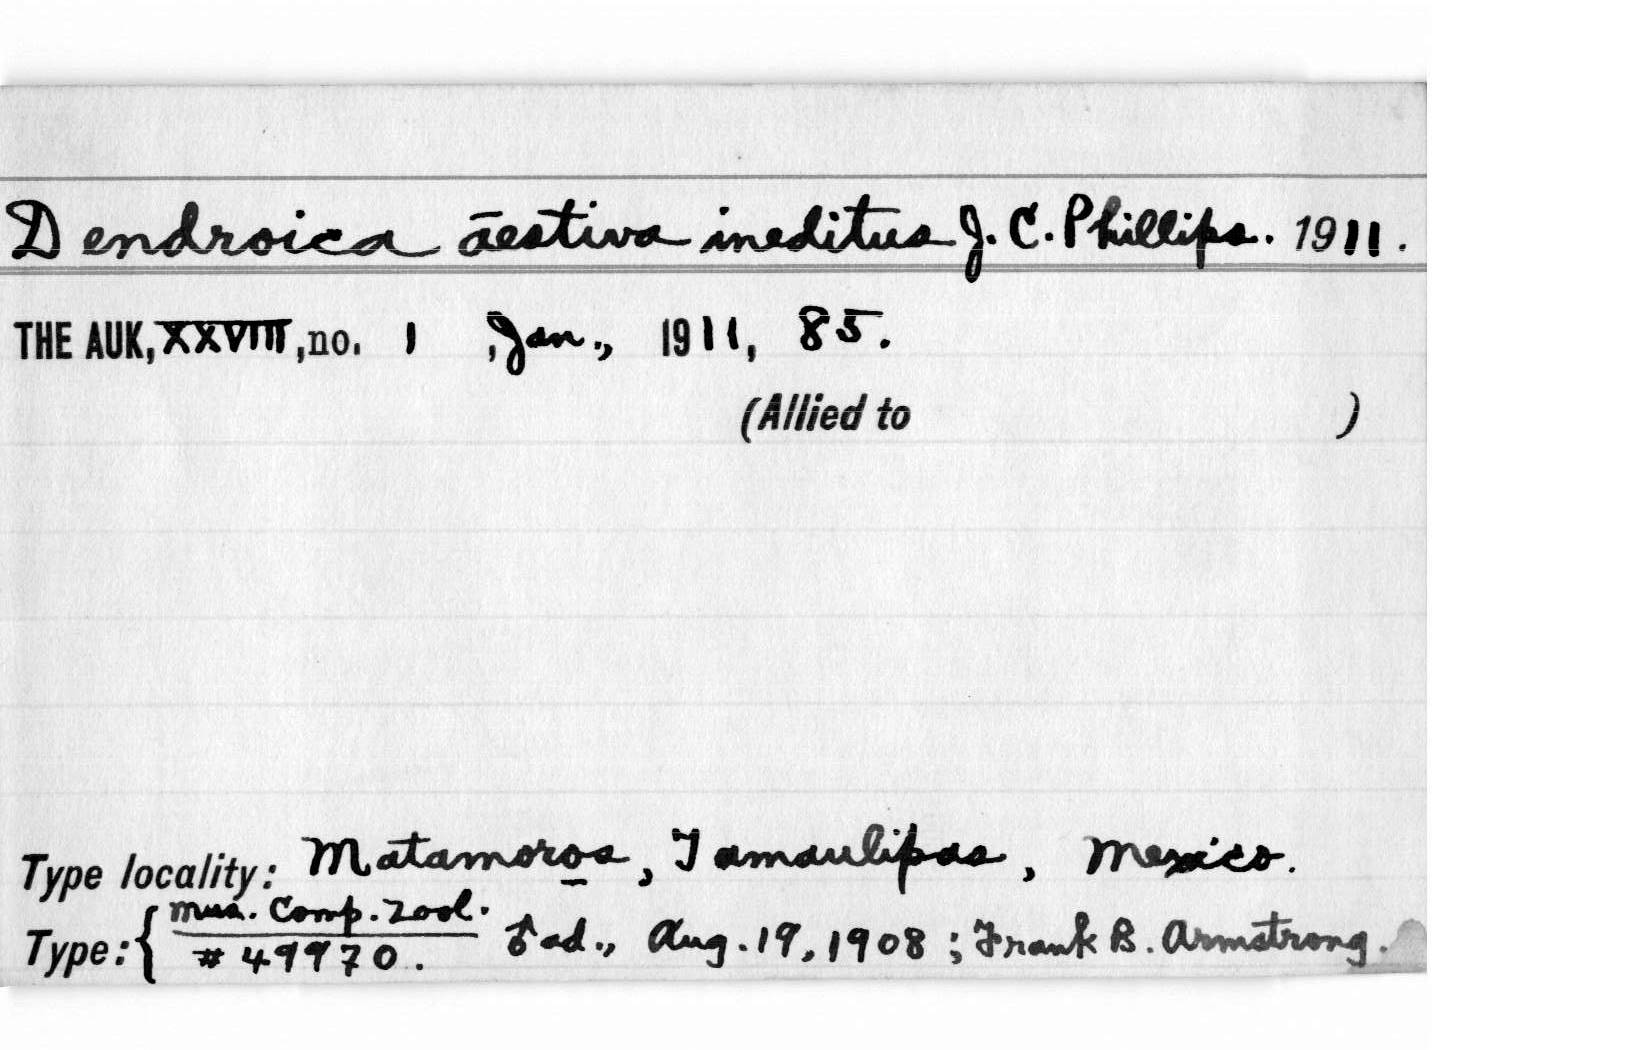 Dendroica āestiva ineditus J. C. Phillips. 1911.
THE AUK, XXVIII, no. 1, Jan., 1911, 85.
(Allied to )
Type locality: Matamoros, Tamaulipas, Mexico.
Mus. Comp. Zool.
Type: { #49970. ♂ ad., Aug. 19, 1908; Frank B. Armstrong.